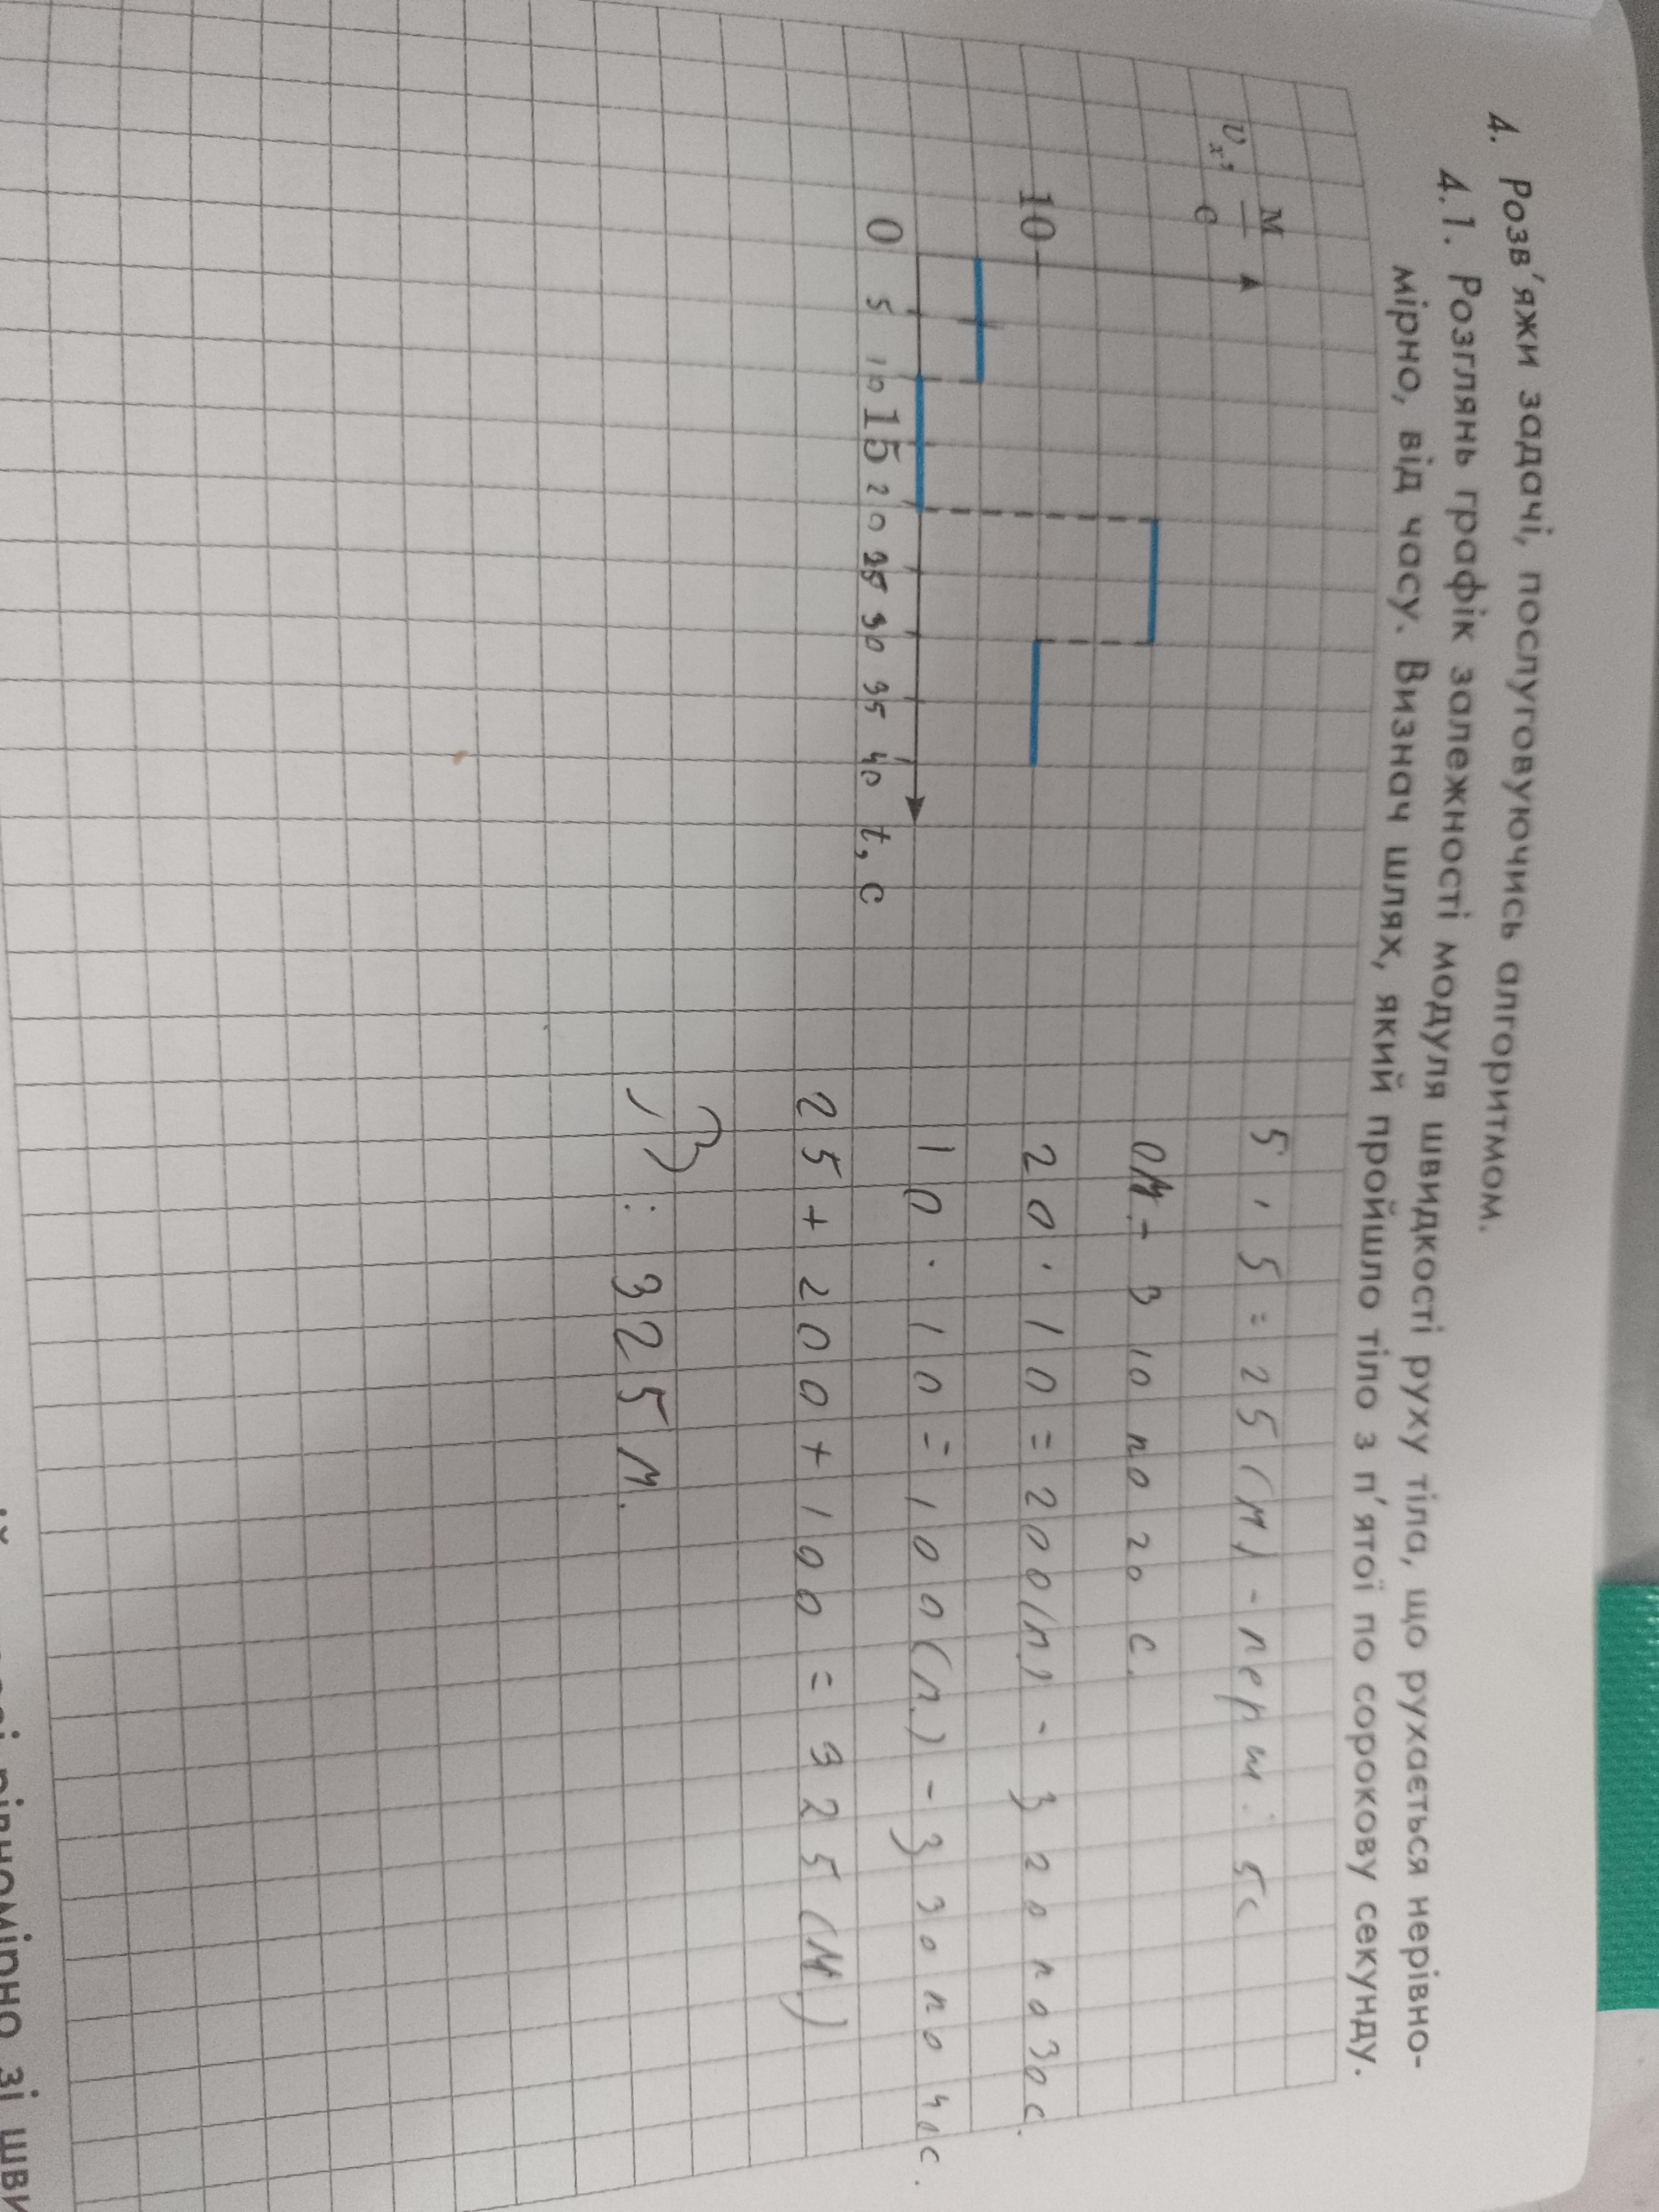 4. Розв'яжи задачі, послуговуючись алгоритмом.
4.1. Розглянь графік залежності модуля швидкості руху тіла, що рухається нерівно-
мірно, від часу. Визнач шлях, який пройшло тіло з п'ятої по сорокову секунду.
υx, м/с
10
0 5 10 15 20 25 30 35 40 t, с
5 · 5 = 25 (м) - перші 5с
0м - з 10 по 20 с.
20 · 10 = 200(м) - з 20 по 30с.
10 · 10 = 100(м.) - з 30 по 40с.
25 + 200 + 100 = 325 (м.)
: 325 м.